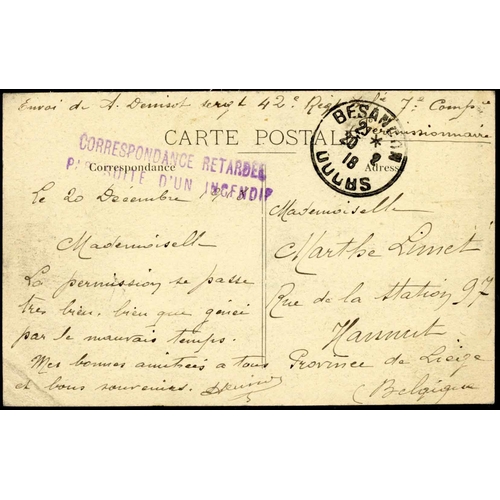 Envoi de A. Denisot sergt 42e Régt d'Inf. 7e Compie
Permissionnaire
CARTE POSTALE
BESANCON
20 * 2
18
DOUBS
CORRESPONDANCE RETARDEE
PAR SUITE D'UN INCENDIE
Correspondance
Adresse
Le 20 Décembre 1918
Mademoiselle
La permission se passe
très bien, bien que gêné
par le mauvais temps.
Mes bonnes amitiées à tous
et bons souvenirs.
Mademoiselle
Marthe Limet
Rue de la Station 97
Hannut
Province de Liège
(Belgique